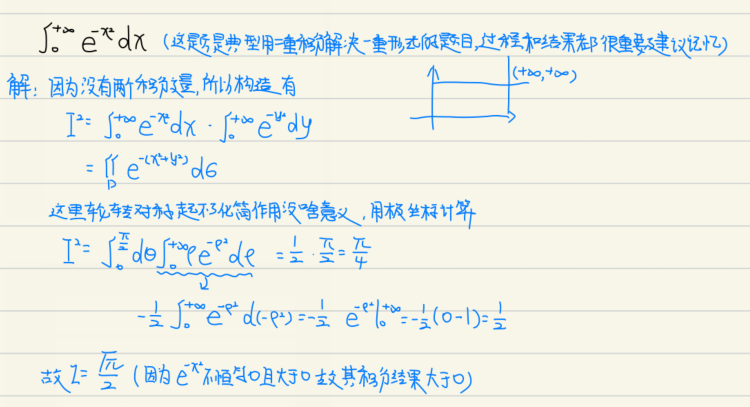 ∫₀^{+∞} e^{-x²} dx (这题是典型用二重积分解决一重形式的题目,过程和结果都很重要建议记忆)
解: 因为没有两个积分变量,所以构造,有
(+∞,+∞)
I² = ∫₀^{+∞} e^{-x²} dx · ∫₀^{+∞} e^{-y²} dy
= ∬_D e^{-(x²+y²)} dσ
这里轮转对称起不了化简作用没啥意义,用极坐标计算
I² = ∫₀^{π/2} dθ ∫₀^{+∞} ρe^{-ρ²} dρ = 1/2 · π/2 = π/4
-1/2 ∫₀^{+∞} e^{-ρ²} d(-ρ²) = -1/2 e^{-ρ²}|₀^{+∞} = -1/2 (0-1) = 1/2
故 I = √π/2 (因为 e^{-x²} 不恒为0且大于0 故其积分结果大于0)